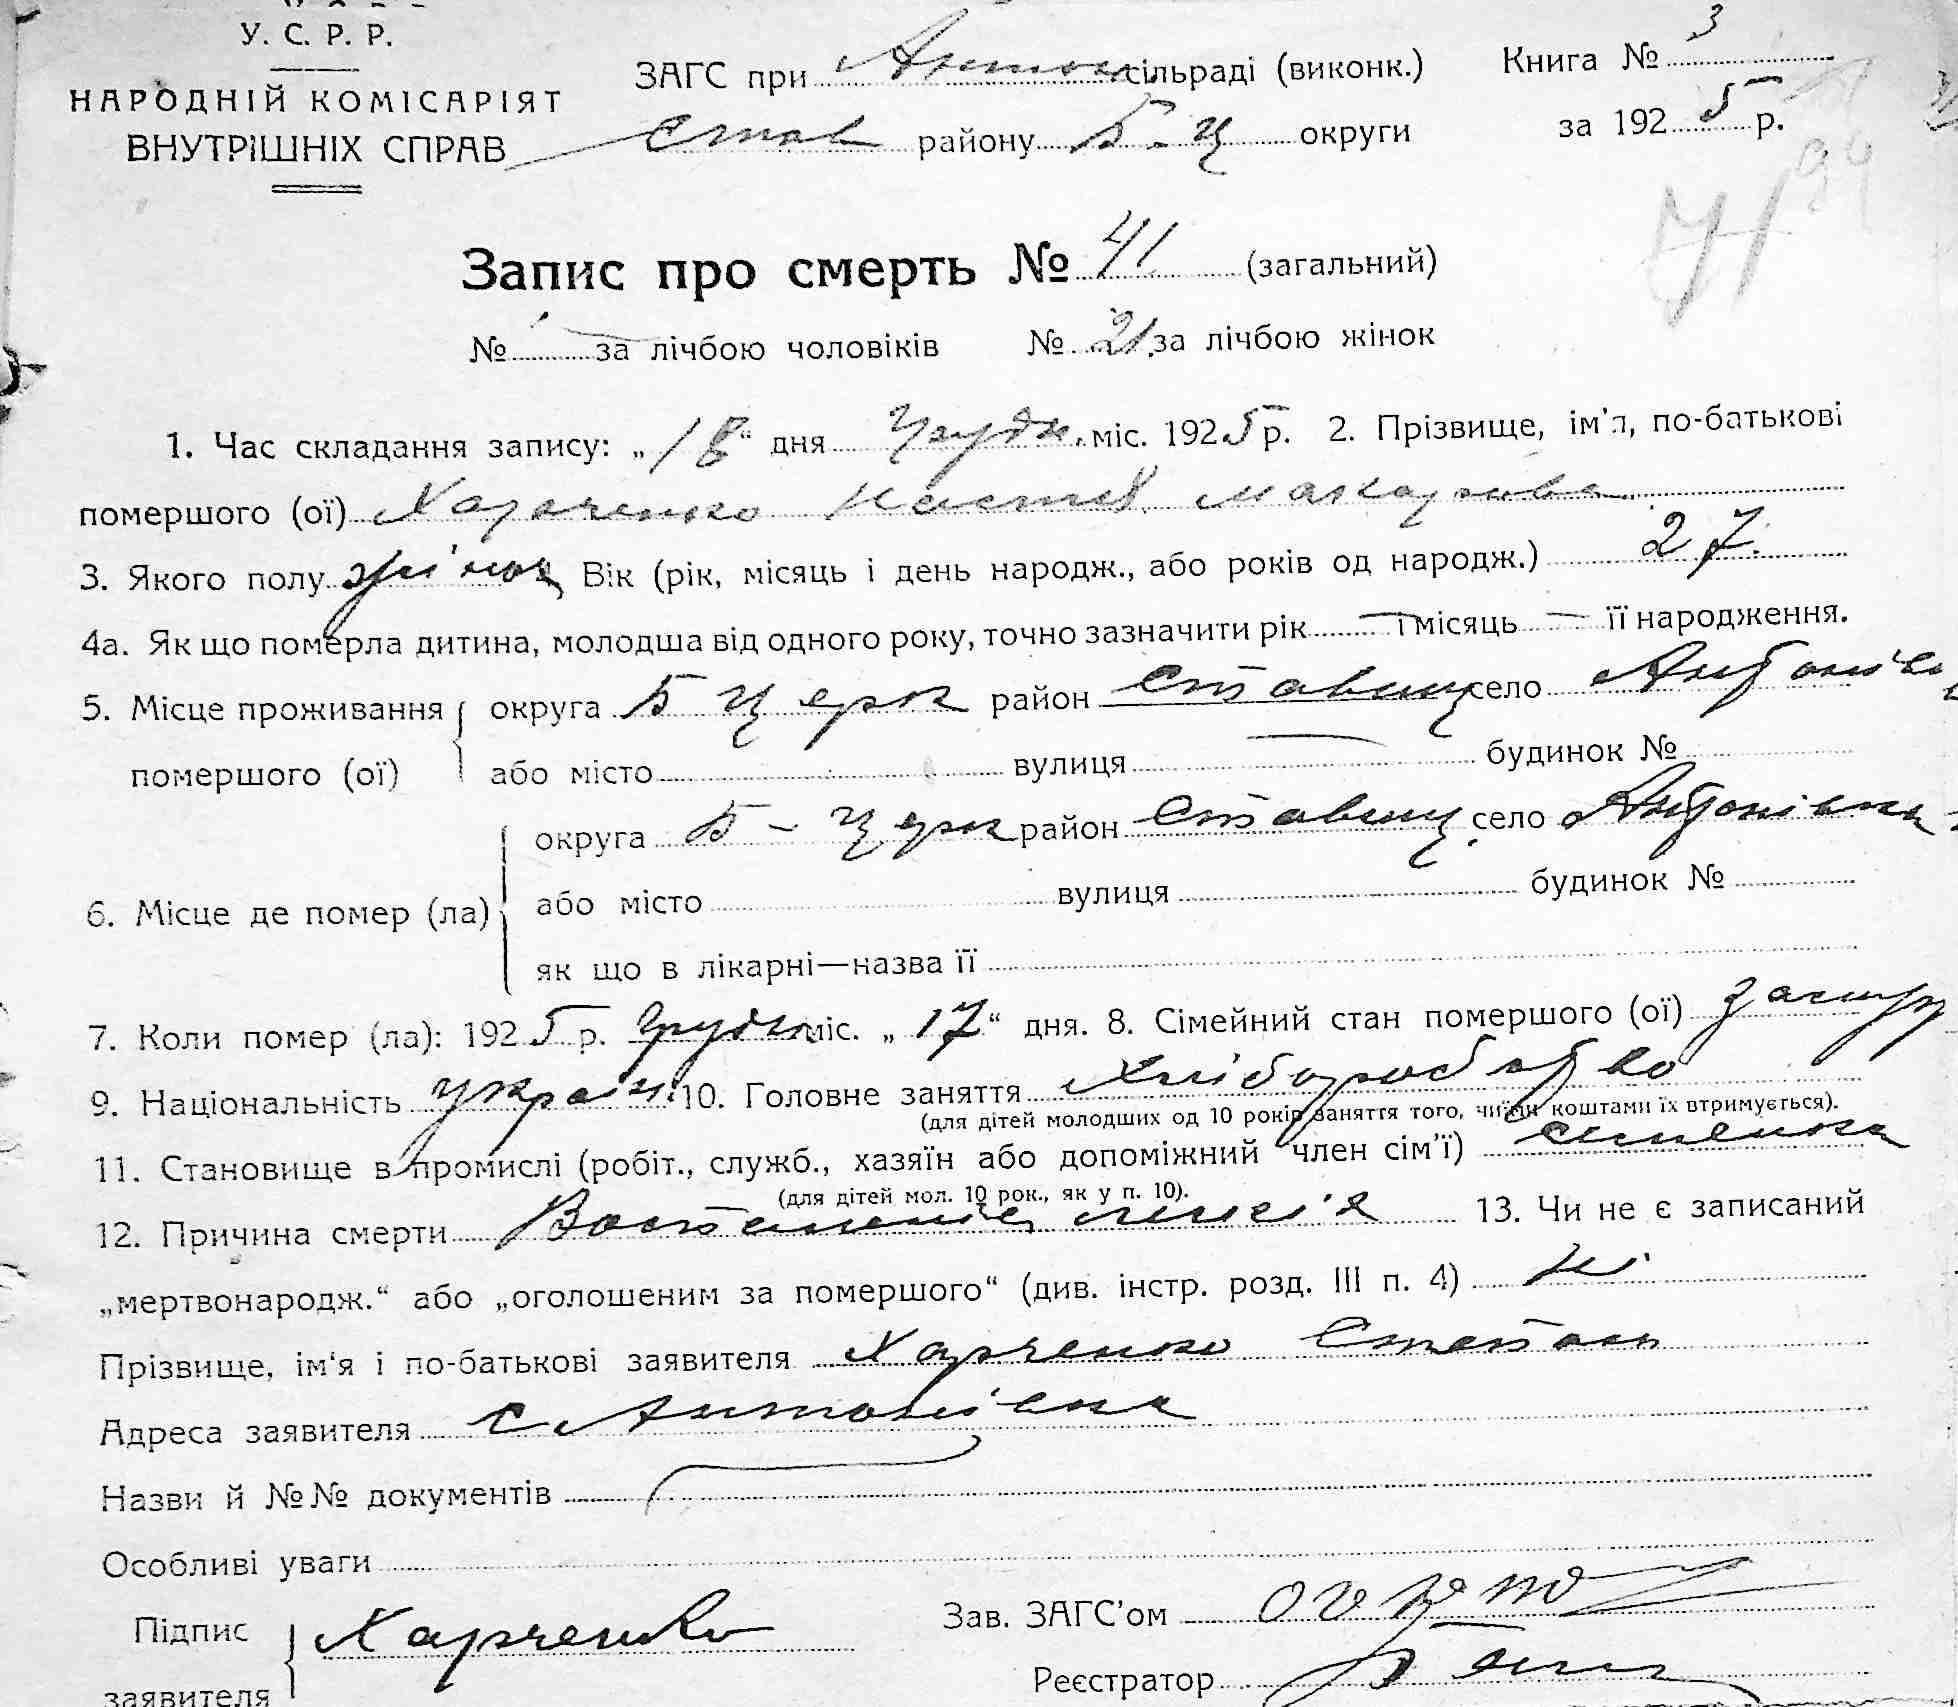 У. С. Р. Р.
НАРОДНІЙ КОМІСАРІЯТ
ВНУТРІШНІХ СПРАВ
ЗАГС при Антон сільраді (виконк.)
Став району Б-Ц округи
Книга № 3
за 1925 р.
71
Запис про смерть № 41 (загальний)
№ — за лічбою чоловіків № 21 за лічбою жінок
1. Час складання запису: „18“ дня Грудн. міс. 1925 р. 2. Прізвище, ім'я, по-батькові
помершого (ої) Харченко Настя Макарова
3. Якого полу жіноц Вік (рік, місяць і день народж., або років од народж.) 27.
4а. Як що померла дитина, молодша від одного року, точно зазначити рік — і місяць — її народження.
5. Місце проживання помершого (ої) округа Б Церк район Ставищ село Антонівка
або місто вулиця — будинок №
6. Місце де помер (ла) округа Б-Церк район Ставищ село Антонівка
або місто вулиця будинок №
як що в лікарні—назва її
7. Коли помер (ла): 1925 р. Грудн міс. „17“ дня. 8. Сімейний стан помершого (ої)
9. Національність україн. 10. Головне заняття Хліборобство
(для дітей молодших од 10 років заняття того, чиїми коштами їх втримується).
11. Становище в промислі (робіт., служб., хазяїн або допоміжний член сім'ї)
(для дітей мол. 10 рок., як у п. 10).
12. Причина смерти 13. Чи не є записаний
„мертвонародж.“ або „оголошеним за помершого“ (див. інстр. розд. III п. 4) ні
Прізвище, ім'я і по-батькові заявителя Харченко Степан
Адреса заявителя с Антонівка
Назви й №№ документів
Особливі уваги
Підпис заявителя Харченко
Зав. ЗАГС'ом
Реєстратор